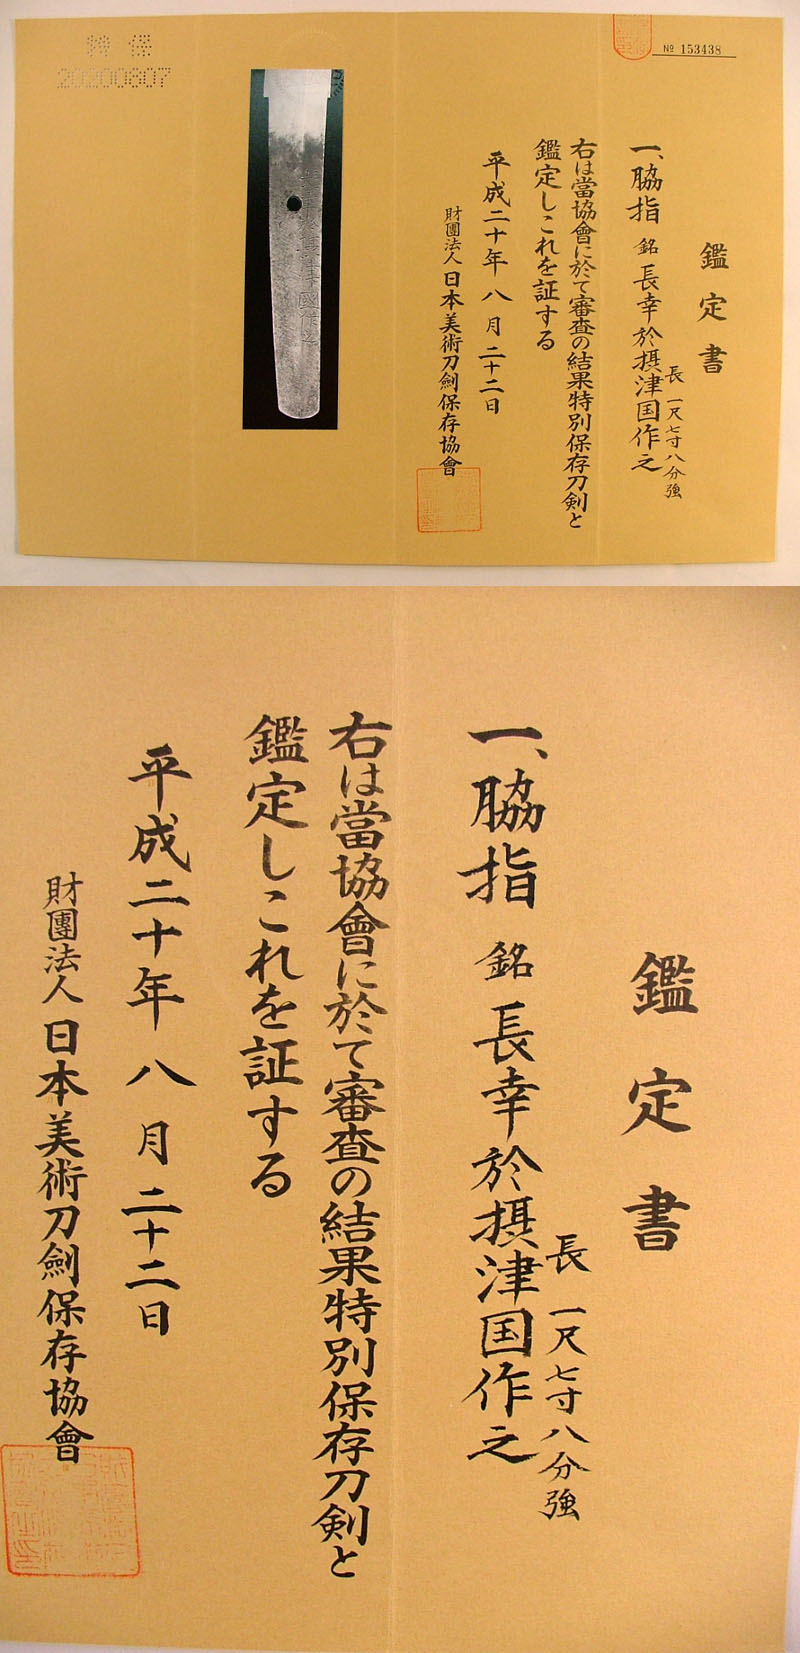 特保
20200807
№ 153438
鑑定書
一、脇指 銘 長幸於摂津国作之
長 一尺七寸八分強
右は當協會に於て審査の結果特別保存刀剣と
鑑定しこれを証する
平成二十年八月二十二日
財團法人日本美術刀劍保存協會
鑑定書
一、脇指 銘 長幸於摂津国作之
長 一尺七寸八分強
右は當協會に於て審査の結果特別保存刀剣と
鑑定しこれを証する
平成二十年八月二十二日
財團法人日本美術刀劍保存協會